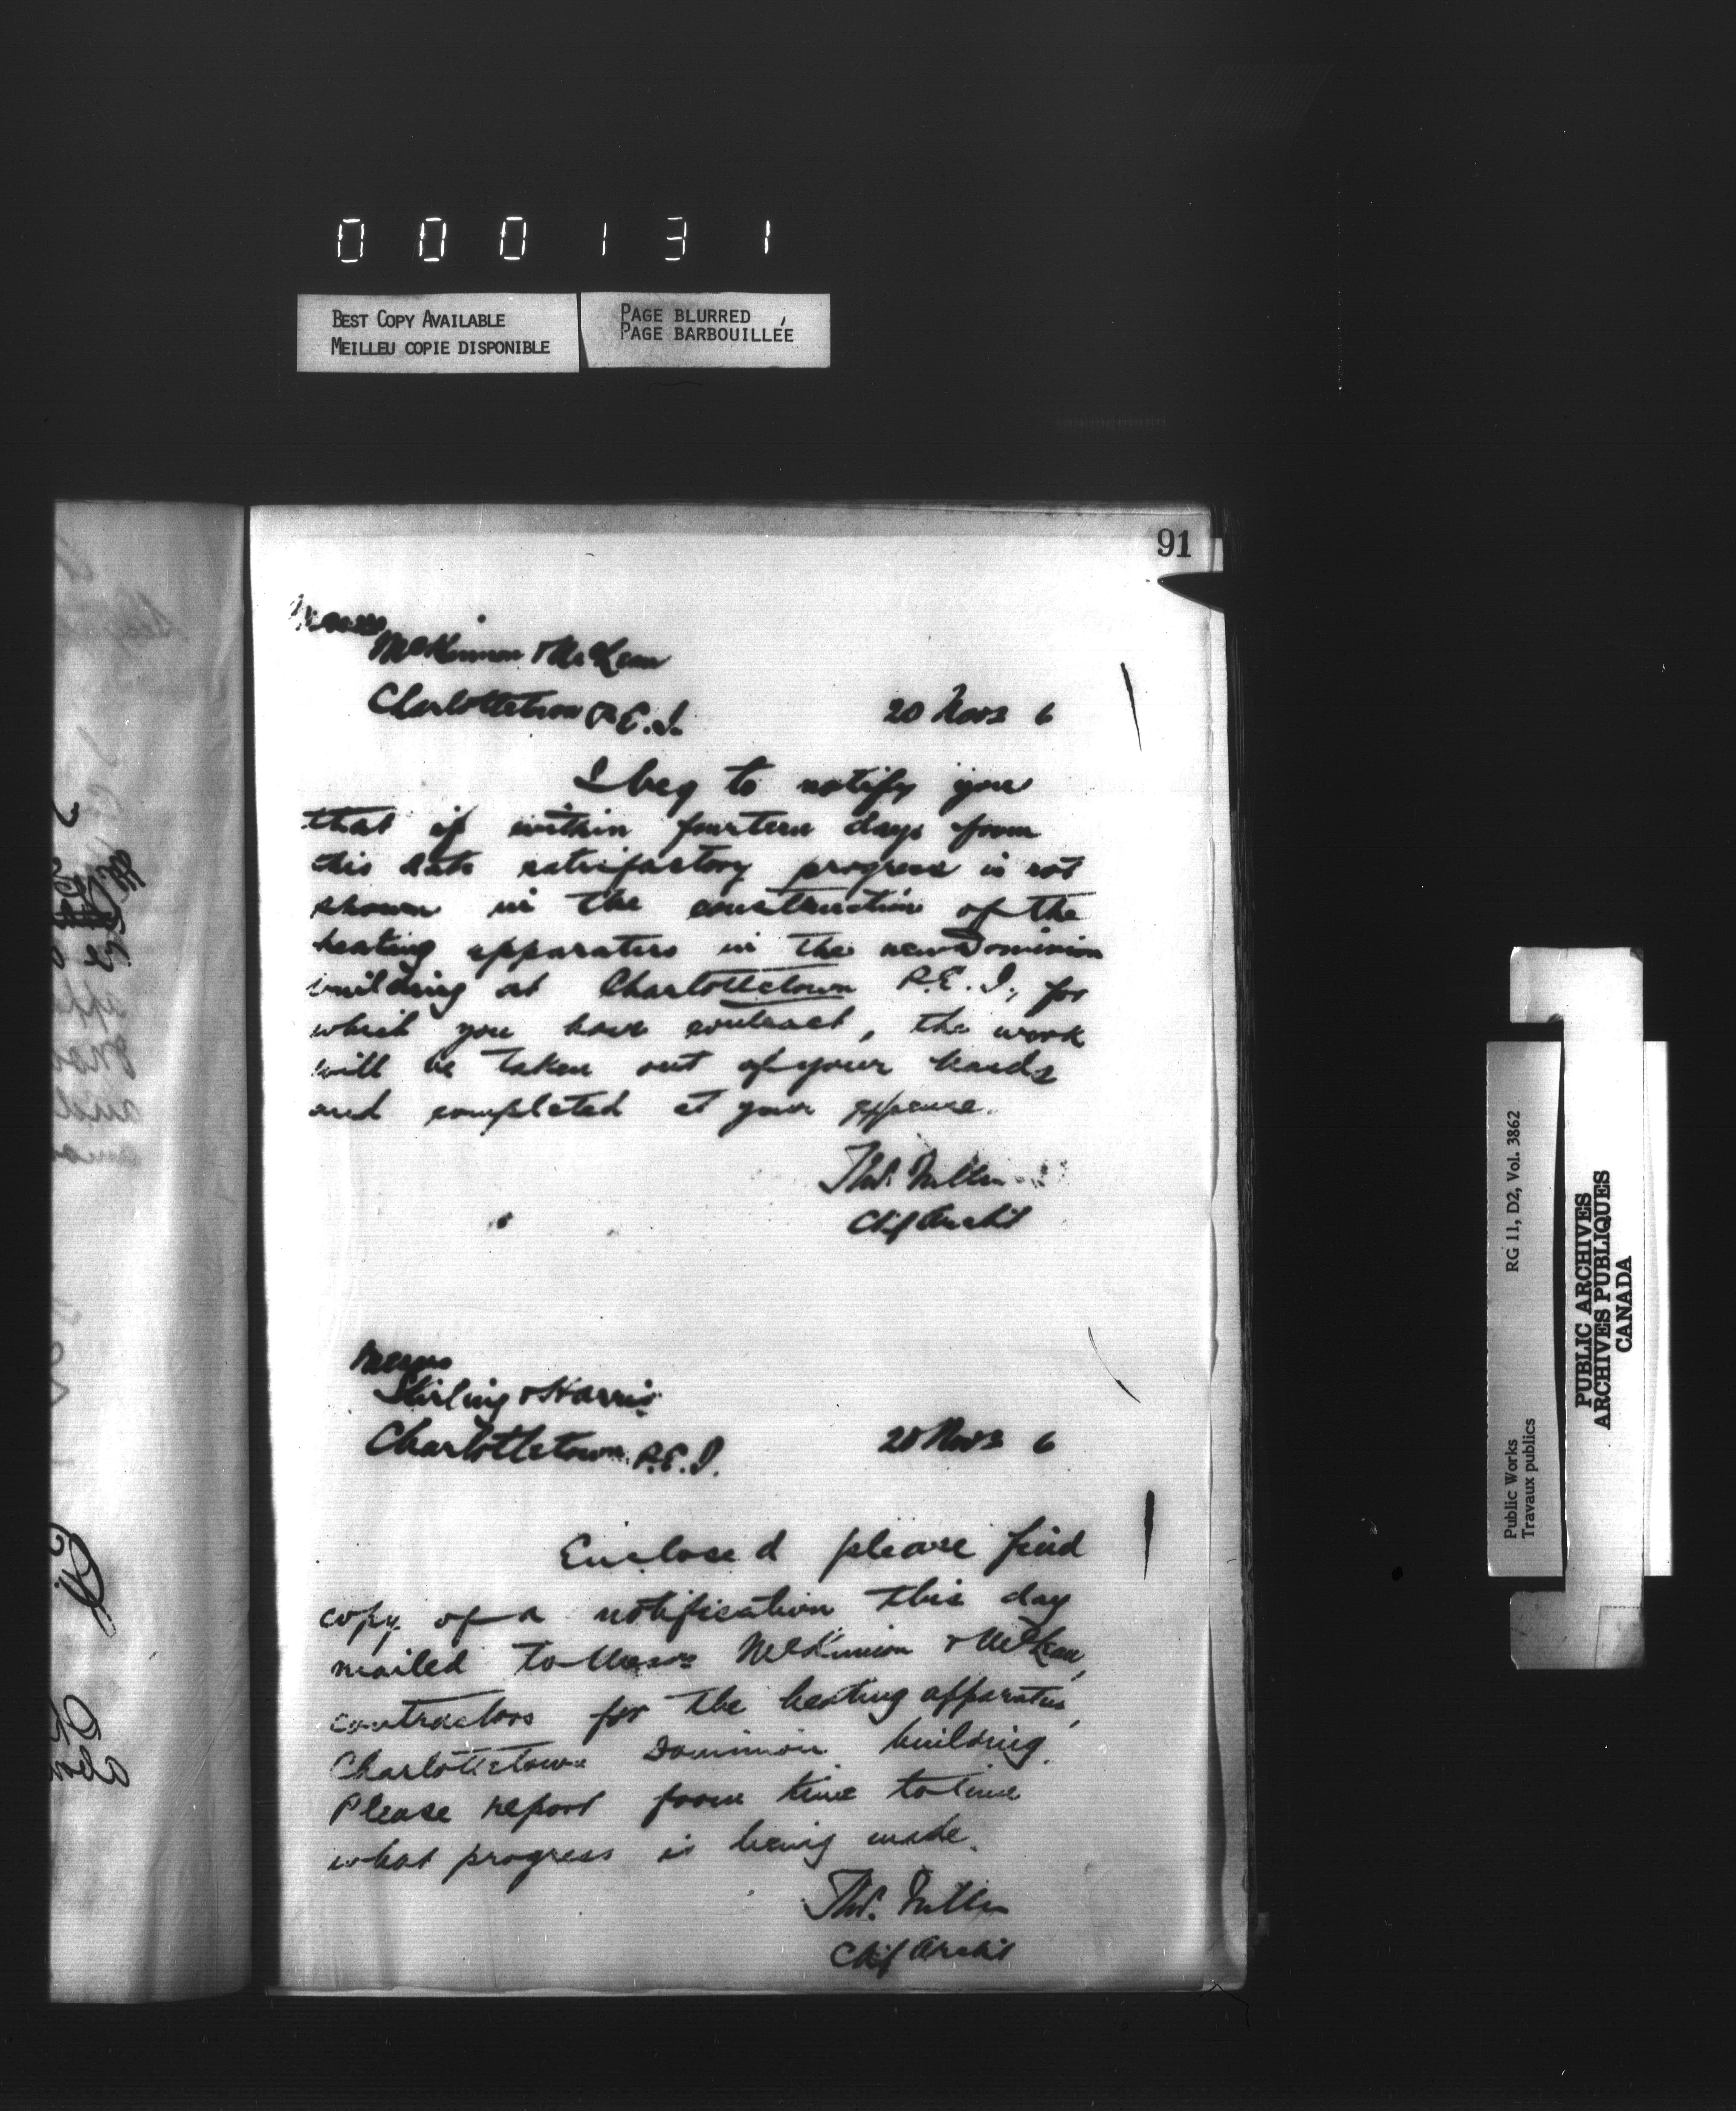 000131
BEST COPY AVAILABLE
MEILLEU COPIE DISPONIBLE
PAGE BLURRED
PAGE BARBOUILLÉE
91
Messrs
McKinnon & McLean
Charlottetown P.E.I. 20 Novr 6
I beg to notify you
that if within fourteen days from
this date satisfactory progress is not
shown in the construction of the
heating apparatus in the new Dominion
building at Charlottetown P.E.I., for
which you have contract, the work
will be taken out of your hands
and completed at your expense.
Thos. Fuller
Chf Archt
Messrs
Stirling & Harris
Charlottetown P.E.I. 20 Novr 6
Enclosed please find
copy of a notification this day
mailed to Messrs McKinnon & McLean,
contractors for the heating apparatus,
Charlottetown Dominion building.
Please report from time to time
what progress is being made.
Thos. Fuller
Chf Archt
Public Works
Travaux publics
RG 11, D2, Vol. 3862
PUBLIC ARCHIVES
ARCHIVES PUBLIQUES
CANADA